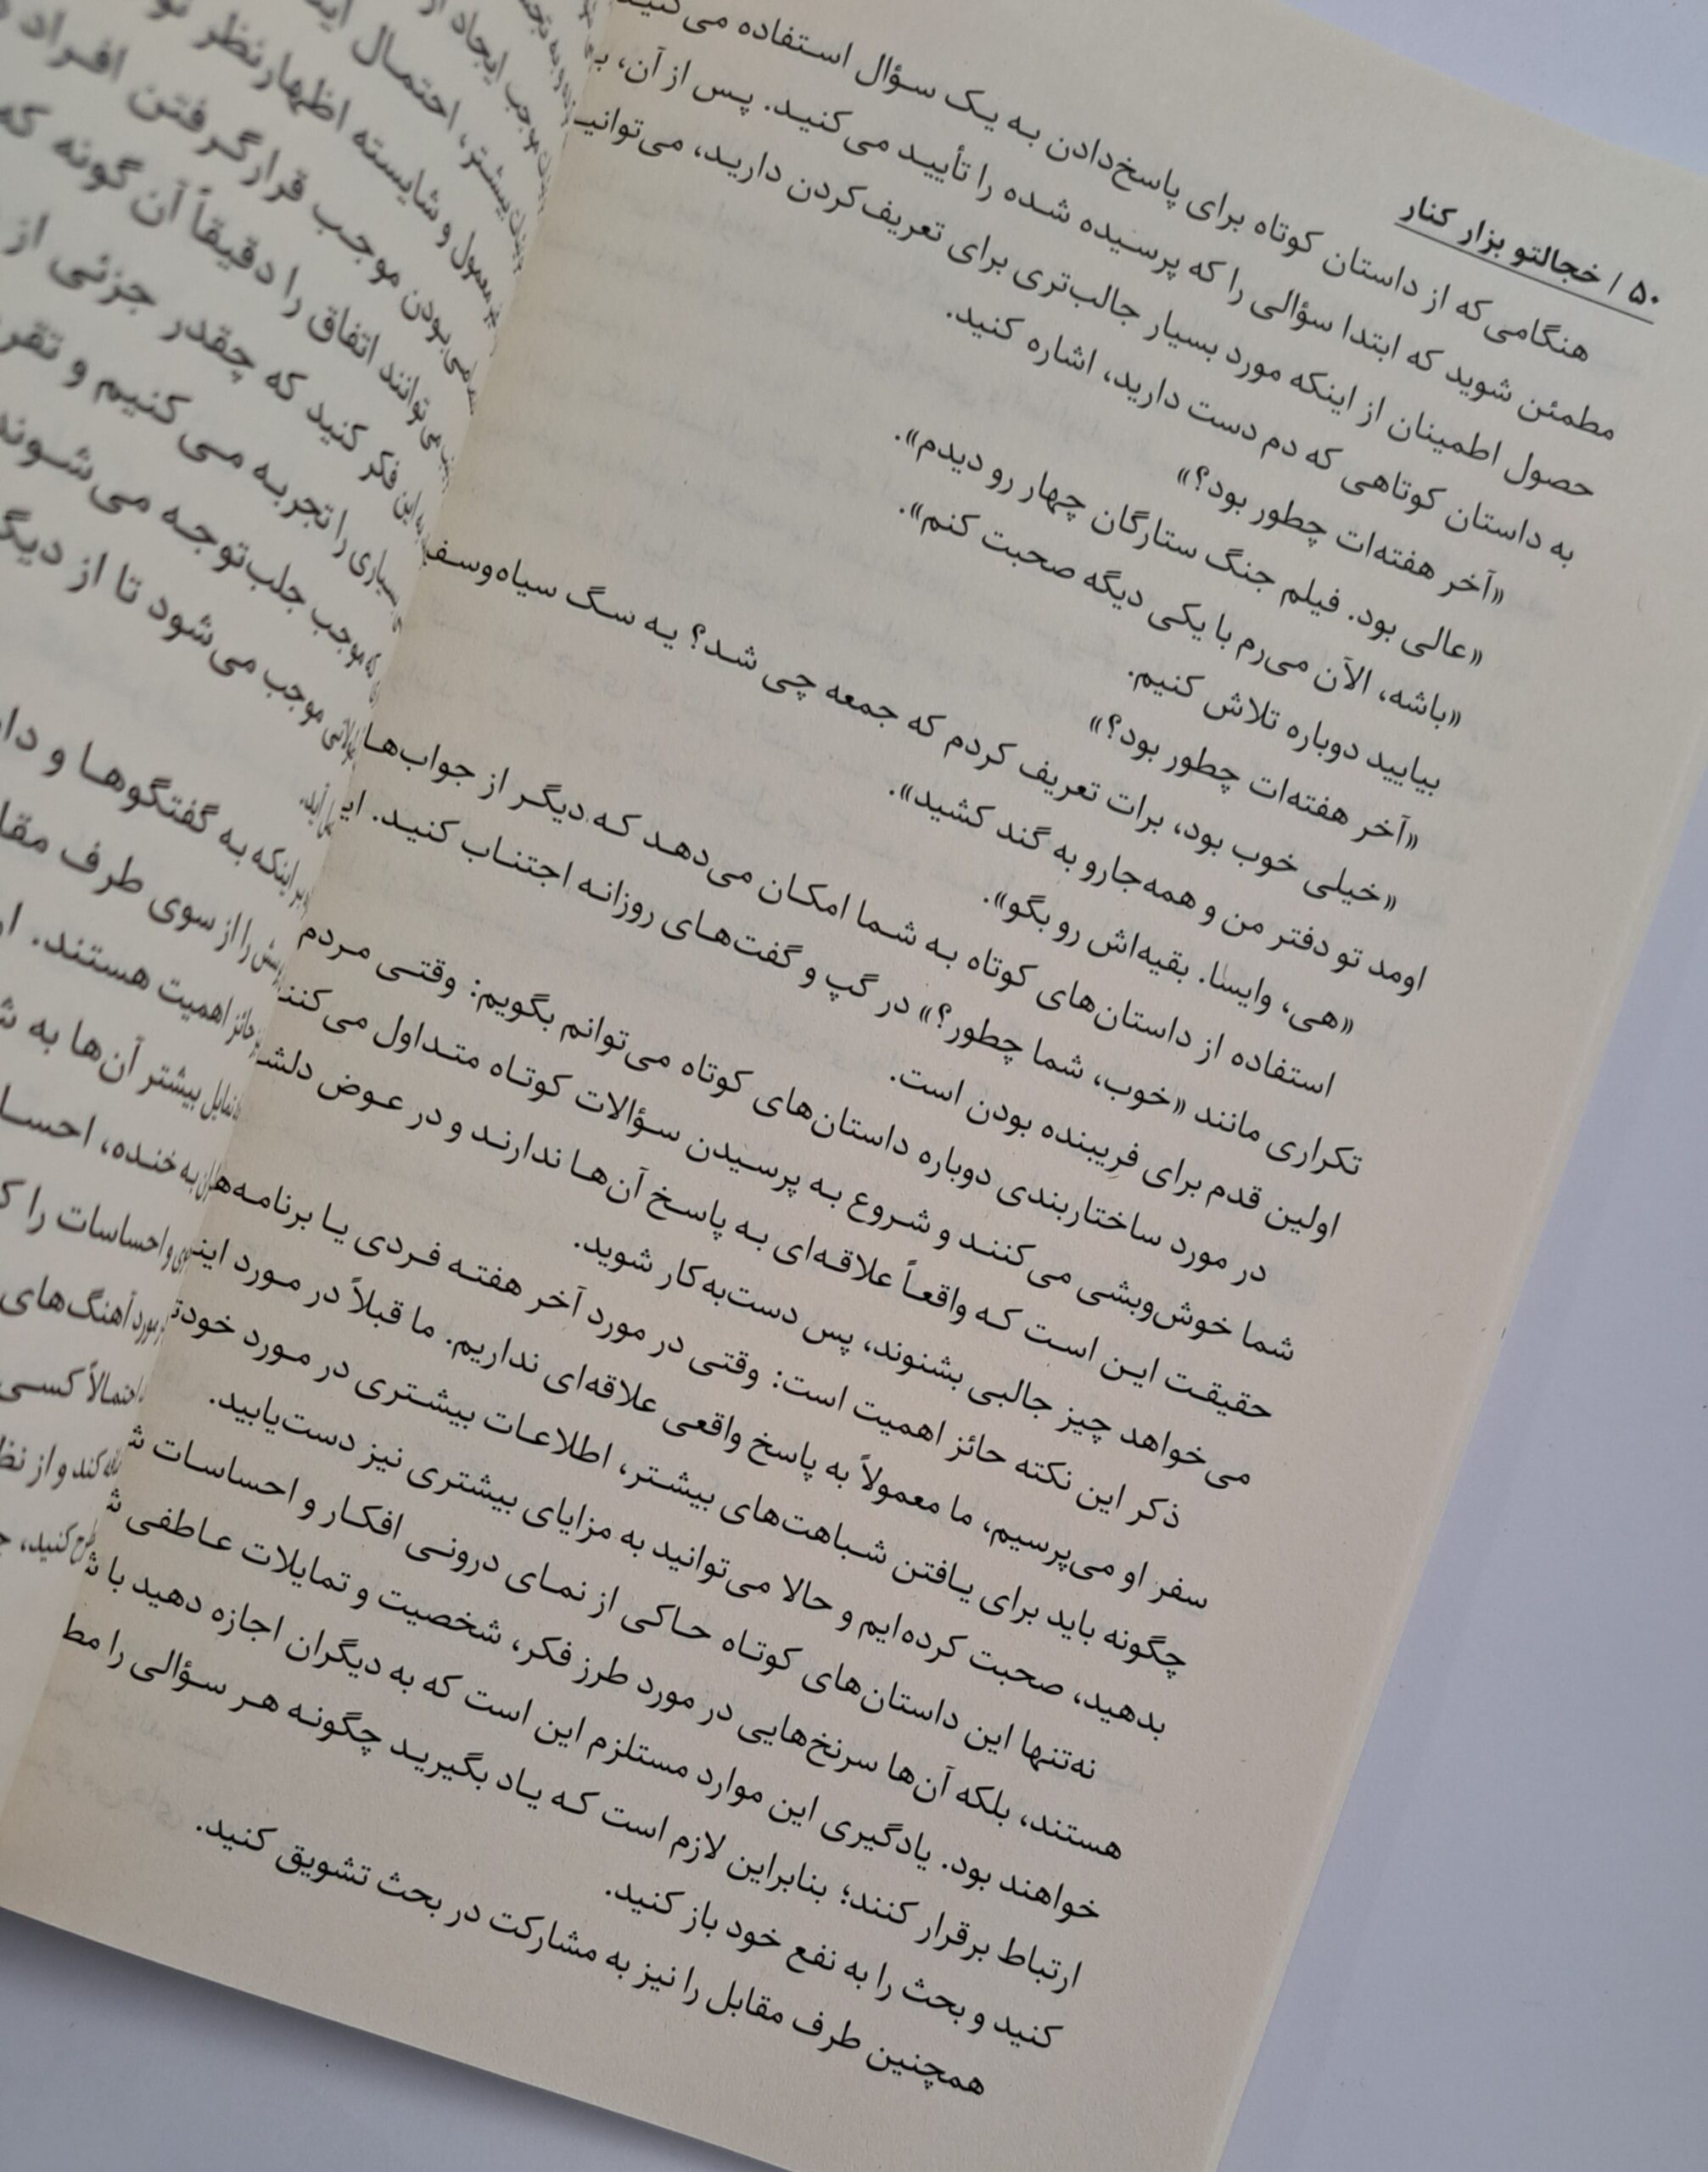 ۵۰ / خجالتو بزار کنار
هنگامی‌که از داستان کوتاه برای پاسخ‌دادن به یک سؤال استفاده می‌کنید
مطمئن شوید که ابتدا سؤالی را که پرسیده شده را تأیید می‌کنید. پس از آن،
حصول اطمینان از اینکه مورد بسیار جالب‌تری برای تعریف‌کردن دارید، می‌توانید
به داستان کوتاهی که دم دست دارید، اشاره کنید.
«آخر هفته‌ات چطور بود؟»
«عالی بود. فیلم جنگ ستارگان چهار رو دیدم».
«باشه، الآن می‌رم با یکی دیگه صحبت کنم».
بیایید دوباره تلاش کنیم.
«آخر هفته‌ات چطور بود؟»
«خیلی خوب بود، برات تعریف کردم که جمعه چی شد؟ یه سگ سیاه‌وسف
اومد تو دفتر من و همه‌جارو به گند کشید».
«هی، وایسا. بقیه‌اش رو بگو».
استفاده از داستان‌های کوتاه به شما امکان می‌دهد که دیگر از جواب‌ها
تکراری مانند «خوب، شما چطور؟» در گپ و گفت‌های روزانه اجتناب کنید. ای
اولین قدم برای فریبنده بودن است.
در مورد ساختاربندی دوباره داستان‌های کوتاه می‌توانم بگویم: وقتی مردم
شما خوش‌وبشی می‌کنند و شروع به پرسیدن سؤالات کوتاه متداول می‌کنند
حقیقت این است که واقعاً علاقه‌ای به پاسخ آن‌ها ندارند و در عوض دلش
می‌خواهد چیز جالبی بشنوند، پس دست‌به‌کار شوید.
ذکر این نکته حائز اهمیت است: وقتی در مورد آخر هفته فردی یا برنامه‌ها
سفر او می‌پرسیم، ما معمولاً به پاسخ واقعی علاقه‌ای نداریم. ما قبلاً در مورد این
چگونه باید برای یافتن شباهت‌های بیشتر، اطلاعات بیشتری در مورد خودت
بدهید، صحبت کرده‌ایم و حالا می‌توانید به مزایای بیشتری نیز دست‌یابید.
نه‌تنها این داستان‌های کوتاه حاکی از نمای درونی افکار و احساسات ش
هستند، بلکه آن‌ها سرنخ‌هایی در مورد طرز فکر، شخصیت و تمایلات عاطفی ش
خواهند بود. یادگیری این موارد مستلزم این است که به دیگران اجازه دهید با ش
ارتباط برقرار کنند؛ بنابراین لازم است که یاد بگیرید چگونه هر سؤالی را مط
کنید و بحث را به نفع خود باز کنید.
همچنین طرف مقابل را نیز به مشارکت در بحث تشویق کنید.
موجب ایجاد
بیشتر، احتمال
معمول و شایسته اظهارنظر
بودن موجب قرارگرفتن افراد
می‌توانند اتفاق را دقیقاً آن گونه که
به این فکر کنید که چقدر جزئی از
بسیاری را تجربه می کنیم و
که موجب جلب‌توجه می‌شوند
موجب می‌شود تا از
بر اینکه به گفتگوها و
را از سوی طرف
حائز اهمیت هستند.
تمایل بیشتر آن‌ها به
به خنده،
و احساسات را
مورد آهنگ‌های
احتمالاً کسی
کند و از
کنید،